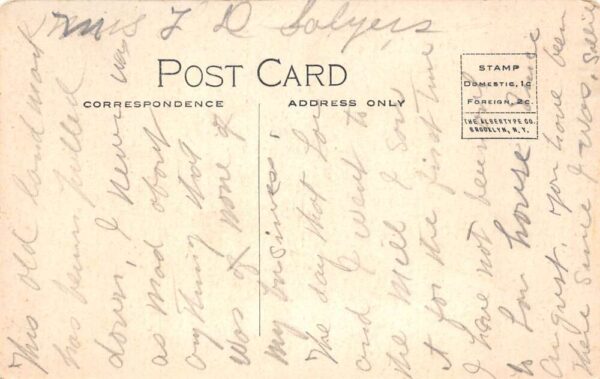 Mrs F D Salyers
POST CARD
CORRESPONDENCE
ADDRESS ONLY
STAMP
DOMESTIC, 1c
FOREIGN, 2c.
THE ALBERTYPE CO.
BROOKLYN, N.Y.
This old landmark
has been pulled
down, I never was
as mad about
anything that
was of none of
my business,
The day that Lou
and I went to
the mill I saw
it for the first time
I have not been
to Lou house since
August. You have been
there since I was, Sallie